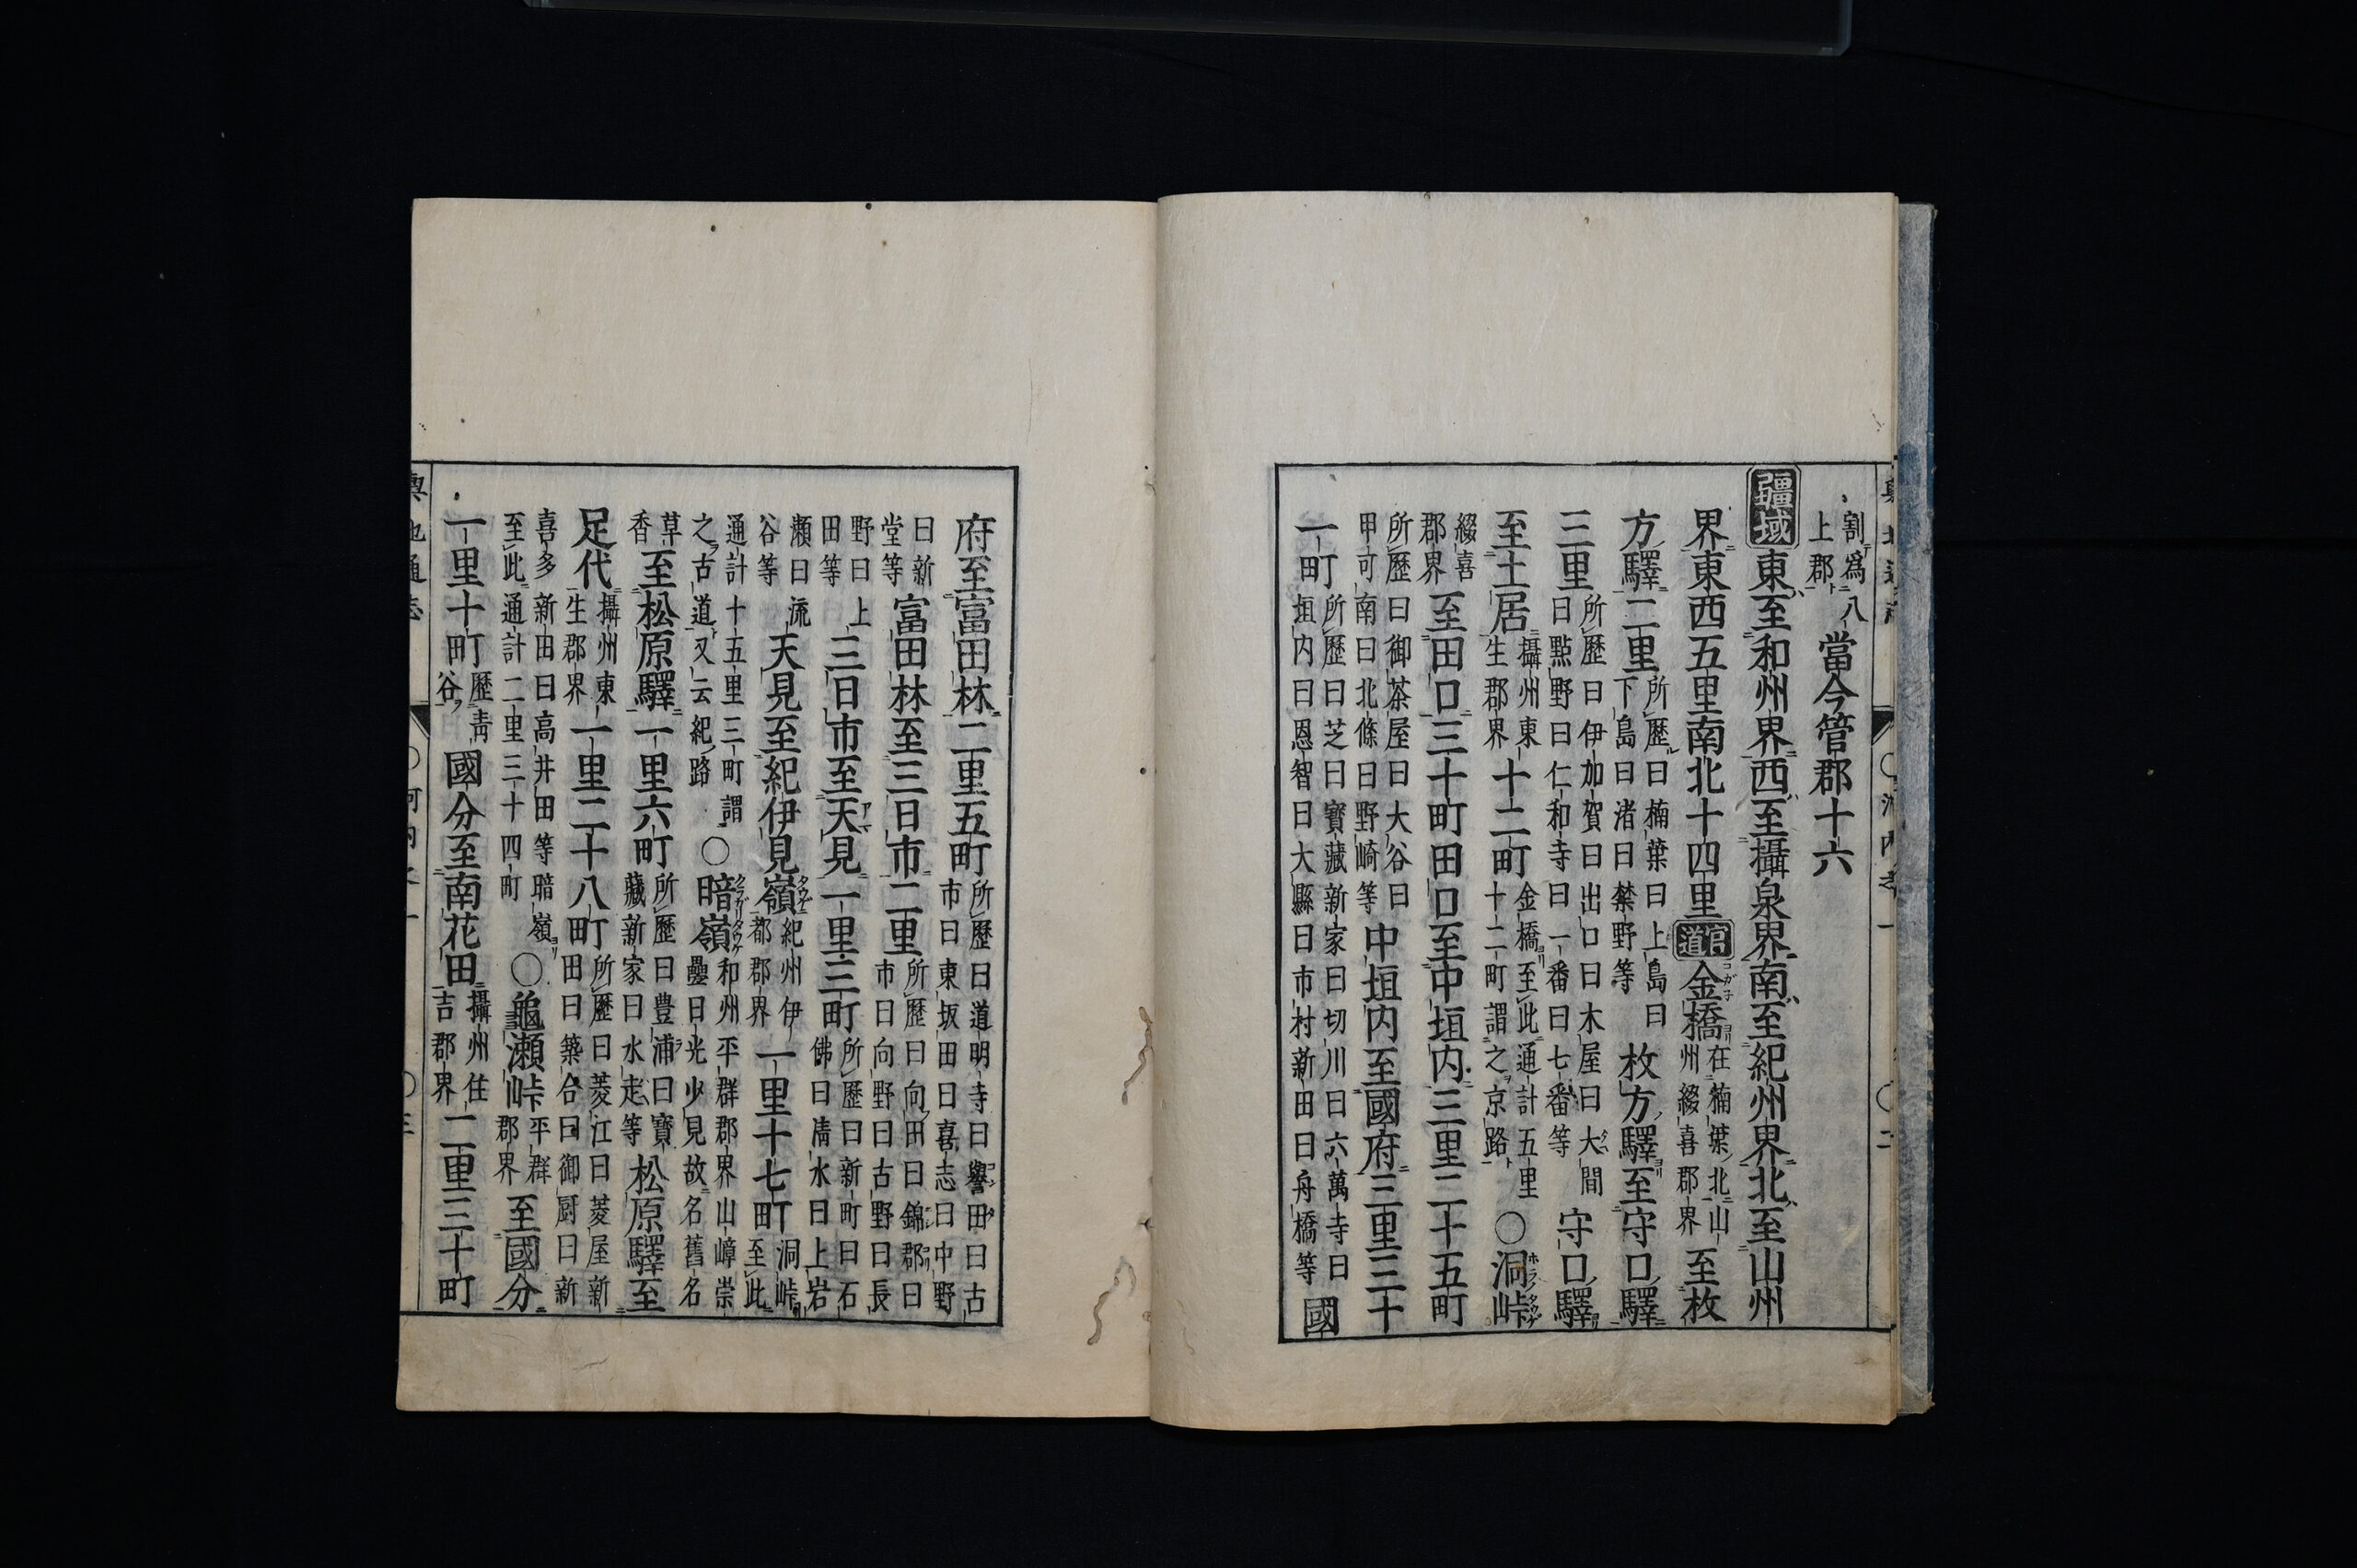 割爲八
上郡
當今管郡十六
疆域東至和州界西至攝泉界南至紀州界北至山州
界東西五里南北十四里官道金橋在楠葉北山
州綴喜郡界
至枚
方驛二里所歷曰楠葉曰上島曰
下島曰渚曰禁野等
枚方驛至守口驛
三里所歷曰伊加賀曰出口曰木屋曰大間
曰點野曰仁和寺曰一番曰七番等
守口驛
至土居攝州東
生郡界
十二町金橋至此通計五里
十二町謂之京路
○洞峠
綴喜
郡界
至田口三十町田口至中垣内三里二十五町
所歷曰御茶屋曰大谷曰
甲可南曰北條曰野崎等
中垣内至國府三里三十
一町所歷曰芝曰寶藏新家曰切川曰六萬寺曰
垣内曰恩智曰大縣曰市村新田曰舟橋等
國
府至富田林二里五町所歷曰道明寺曰譽田曰古
市曰東坂田曰喜志曰中野
曰新
堂等
富田林至三日市二里所歷曰向田曰錦郡曰
市曰向野曰古野曰長
野曰上
田等
三日市至天見一里三町所歷曰新町曰石
佛曰清水曰上岩
瀬曰流
谷等
天見至紀伊見嶺紀州伊
都郡界
一里十七町洞峠至此
通計十五里三町謂
之古道又云紀路
○暗嶺和州平群郡界山嶂崇
疊日光少見故名舊名
草
香
至松原驛一里六町所歷曰豊浦曰寶
藏新家曰水走等
松原驛至
足代攝州東
生郡界
一里二十八町所歷曰菱江曰菱屋新
田曰築合曰御厨曰新
喜多新田曰高井田等暗嶺
至此通計二里三十四町
○龜瀬峠平群
郡界
至國分
一里十町歷青
谷
國分至南花田攝州住
吉郡界
二里三十町